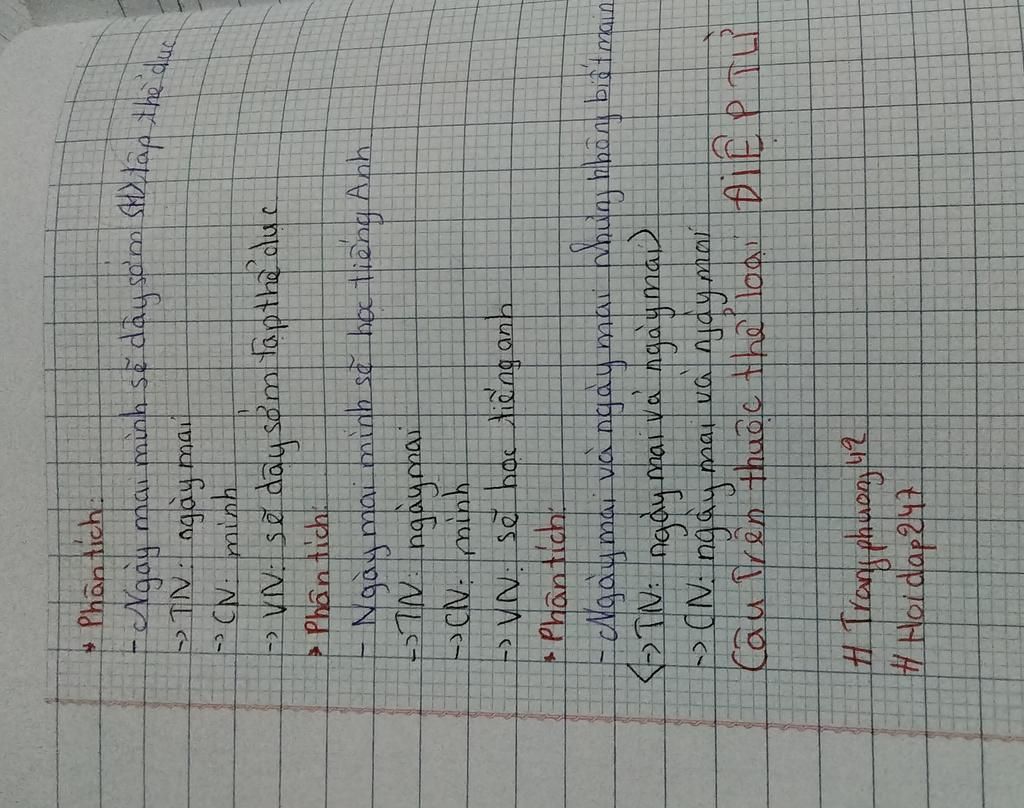 * Phân tích:
- Ngày mai mình sẽ dậy sớm (H) tập thể dục
-> TN: ngày mai
-> CN: mình
-> VN: sẽ dậy sớm tập thể dục
* Phân tích:
- Ngày mai mình sẽ học tiếng Anh
-> TN: ngày mai
-> CN: mình
-> VN: sẽ học tiếng anh
* Phân tích:
- Ngày mai và ngày mai nhưng không biết main
(-> TN: ngày mai và ngày mai)
-> CN: ngày mai và ngày mai
Câu Trên thuộc thể loại ĐIỆP TỪ
# Trangphuong49
# Hoidap247